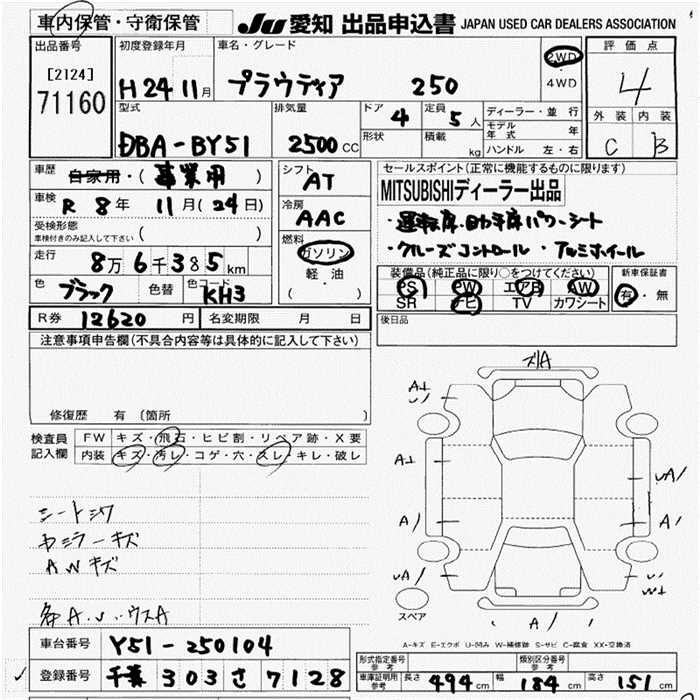 車内保管・守衛保管 JU 愛知 出品申込書 JAPAN USED CAR DEALERS ASSOCIATION
出品番号 初度登録年月 車名・グレード 2WD・4WD 評価点
[2124] 71160 H24 11月 プラウディア 250 4
型式 排気量 ドア 定員 ディーラー・並行 外装 内装
DBA-BY51 2500CC 4 5人 モデル年式 年 C B
形状 積載 kg ハンドル 左・右
車歴 自家用・(事業用) シフト AT セールスポイント(正常に機能するものに限ります)
車検 R 8年 11月(24日) 冷房 AAC MITSUBISHIディーラー出品
受検形態 車検付きのみ記入して下さい ( ) ・運転席・助手席パワーシート
走行 8万6千385km 燃料 ガソリン・軽油 ( ) ・クルーズコントロール・アルミホイール
色 ブラック 色替 色コード KH3 装備品(純正品に限り○をつけてください) 新車保証書
PS PW エアB AW 有・無
SR ナビ TV カワシート
R券 12620円 名変期限 月 日 後日品
注意事項申告欄(不具合内容等は具体的に記入して下さい)
修復歴 有 (箇所 )
検査員記入欄 FW キズ・飛石・ヒビ割・リペア跡・X要
内装 キズ・汚レ・コゲ・穴・スレ・キレ・破レ
シートシワ
ドミラーキズ
AWキズ
各A.U.ウスA
ズリA
A⊥
A⊥
UA/
A/
A/
UA/
A/
スペア
A-キズ E-エクボ U-凹み W-補修跡 S-サビ C-腐食 XX-交換済
車台番号 Y51-250104
登録番号 千葉 303 さ 7128
形式指定番号 参考 類別区分番号 参考
車庫証明用 参考 長さ 494cm 幅 184cm 高さ 151cm